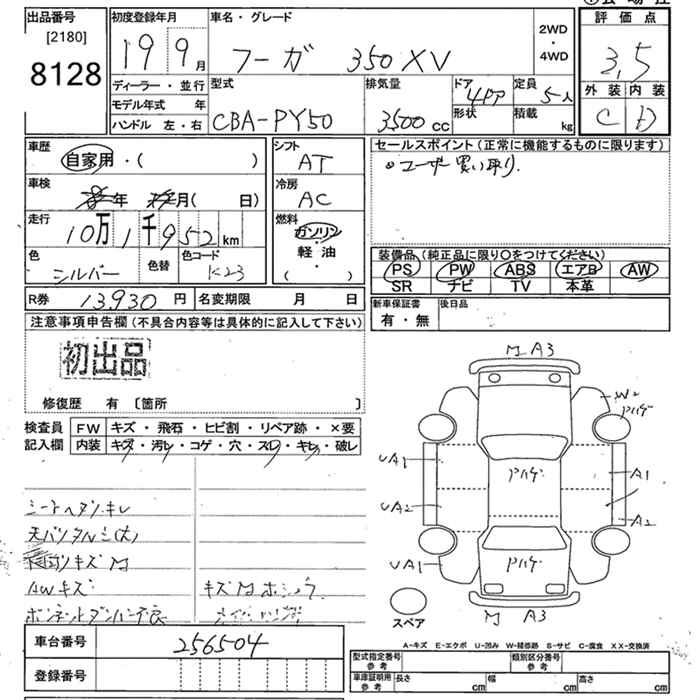 出品番号
[2180]
8128
初度登録年月
19 9月
車名・グレード
フーガ 350XV
2WD
・
4WD
評価点
3,5
外装 内装
C D
ディーラー・並行
モデル年式 年
ハンドル 左・右
型式
CBA-PY50
排気量
3500cc
ドア 4ドア
形状
定員 5人
積載 kg
車歴
自家用・( )
車検
年 月( 日)
走行
10万1千952km
色
シルバー
色替
色コード
K23
シフト
AT
冷房
AC
燃料
ガソリン
軽油
( )
セールスポイント(正常に機能するものに限ります)
ユーザー買い取り.
装備品(純正品に限り○をつけてください)
PS PW ABS エアB AW
SR ナビ TV 本革
R券 13,930円
名変期限 月 日
新車保証書
有・無
後日品
注意事項申告欄(不具合内容等は具体的に記入して下さい)
初出品
修復歴 有 〔箇所 〕
検査員
記入欄
FW キズ・飛石・ヒビ割・リペア跡・×要
内装 キズ・汚レ・コゲ・穴・スレ・キレ・破レ
AWキズ
M A3
W2
UA1
A1
UA2
A2
UA1
M A3
スペア
車台番号 256504
登録番号
A-キズ E-エクボ U-凹み W-補修跡 S-サビ C-腐食 XX-交換済
型式指定番号
参考
類別区分番号
参考
車庫証明用
参考
長さ cm 幅 cm 高さ cm